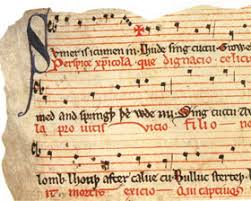 Svmer is icumen in. Lhude sing cuccu. Growe
Perspice xpicola que dignacio celicu
med and springþ þe wde nu. Sing cuccu
la pro uitis vicio filio
lomb lhouþ after calue cu. Bulluc sterteþ
it mortis exicio Qui captiuos